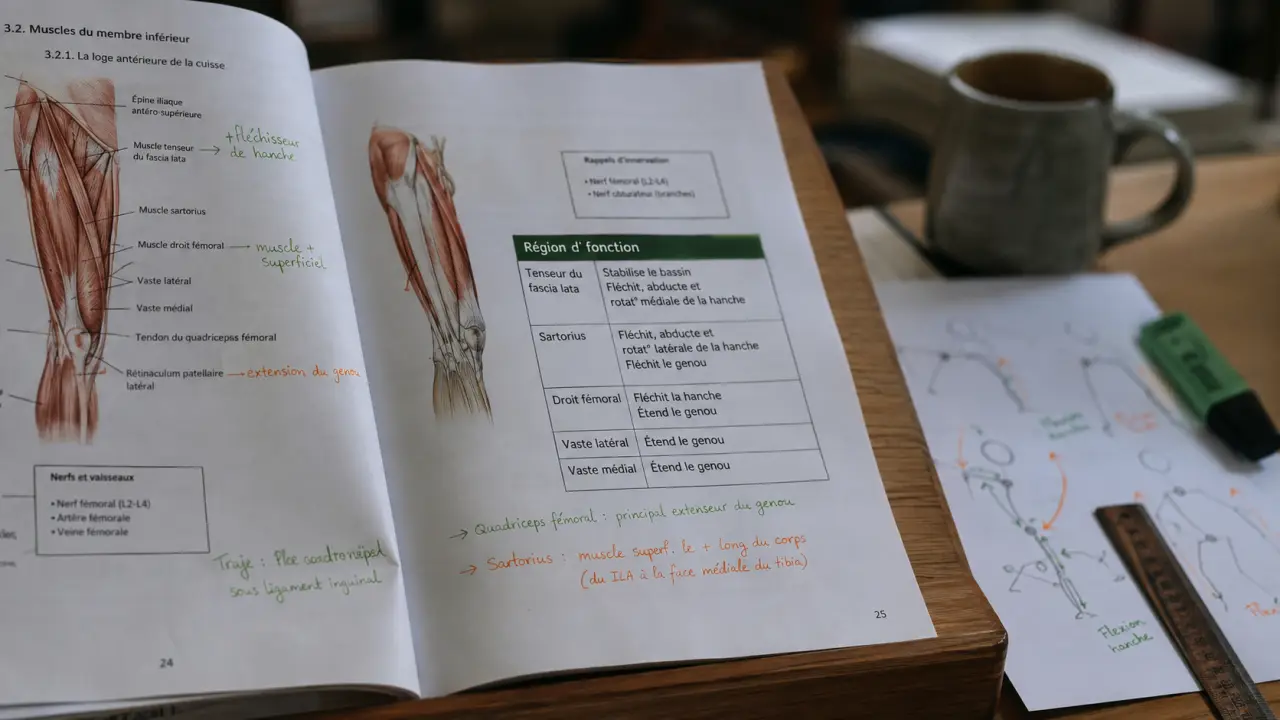 3.2. Muscles du membre inférieur
3.2.1. La loge antérieure de la cuisse
Épine iliaque
antéro-supérieure
Muscle tenseur
du fascia lata
+fléchisseur
de hanche
Muscle sartorius
Muscle droit fémoral
muscle +
superficiel
Vaste latéral
Vaste médial
Tendon du quadriceps fémoral
Rétinaculum patellaire
latéral
extension du genou
Nerfs et vaisseaux
• Nerf fémoral (L2-L4)
• Artère fémorale
• Veine fémorale
Traje :
sous ligament inguinal
24
Rappels d'innervation
• Nerf fémoral (L2-L4)
• Nerf obturateur (branches)
Région d' fonction
Tenseur du
fascia lata
Stabilise le bassin
Fléchit, abducte et
rotat° médiale de la hanche
Sartorius
Fléchit, abducte et
rotat° latérale de la hanche
Fléchit le genou
Droit fémoral
Fléchit la hanche
Étend le genou
Vaste latéral
Étend le genou
Vaste médial
Étend le genou
→ Quadriceps fémoral : principal extenseur du genou
→ Sartorius : muscle superf. le + long du corps
(du ILA à la face médiale du tibia)
25
Flexion
Flexion
hanche